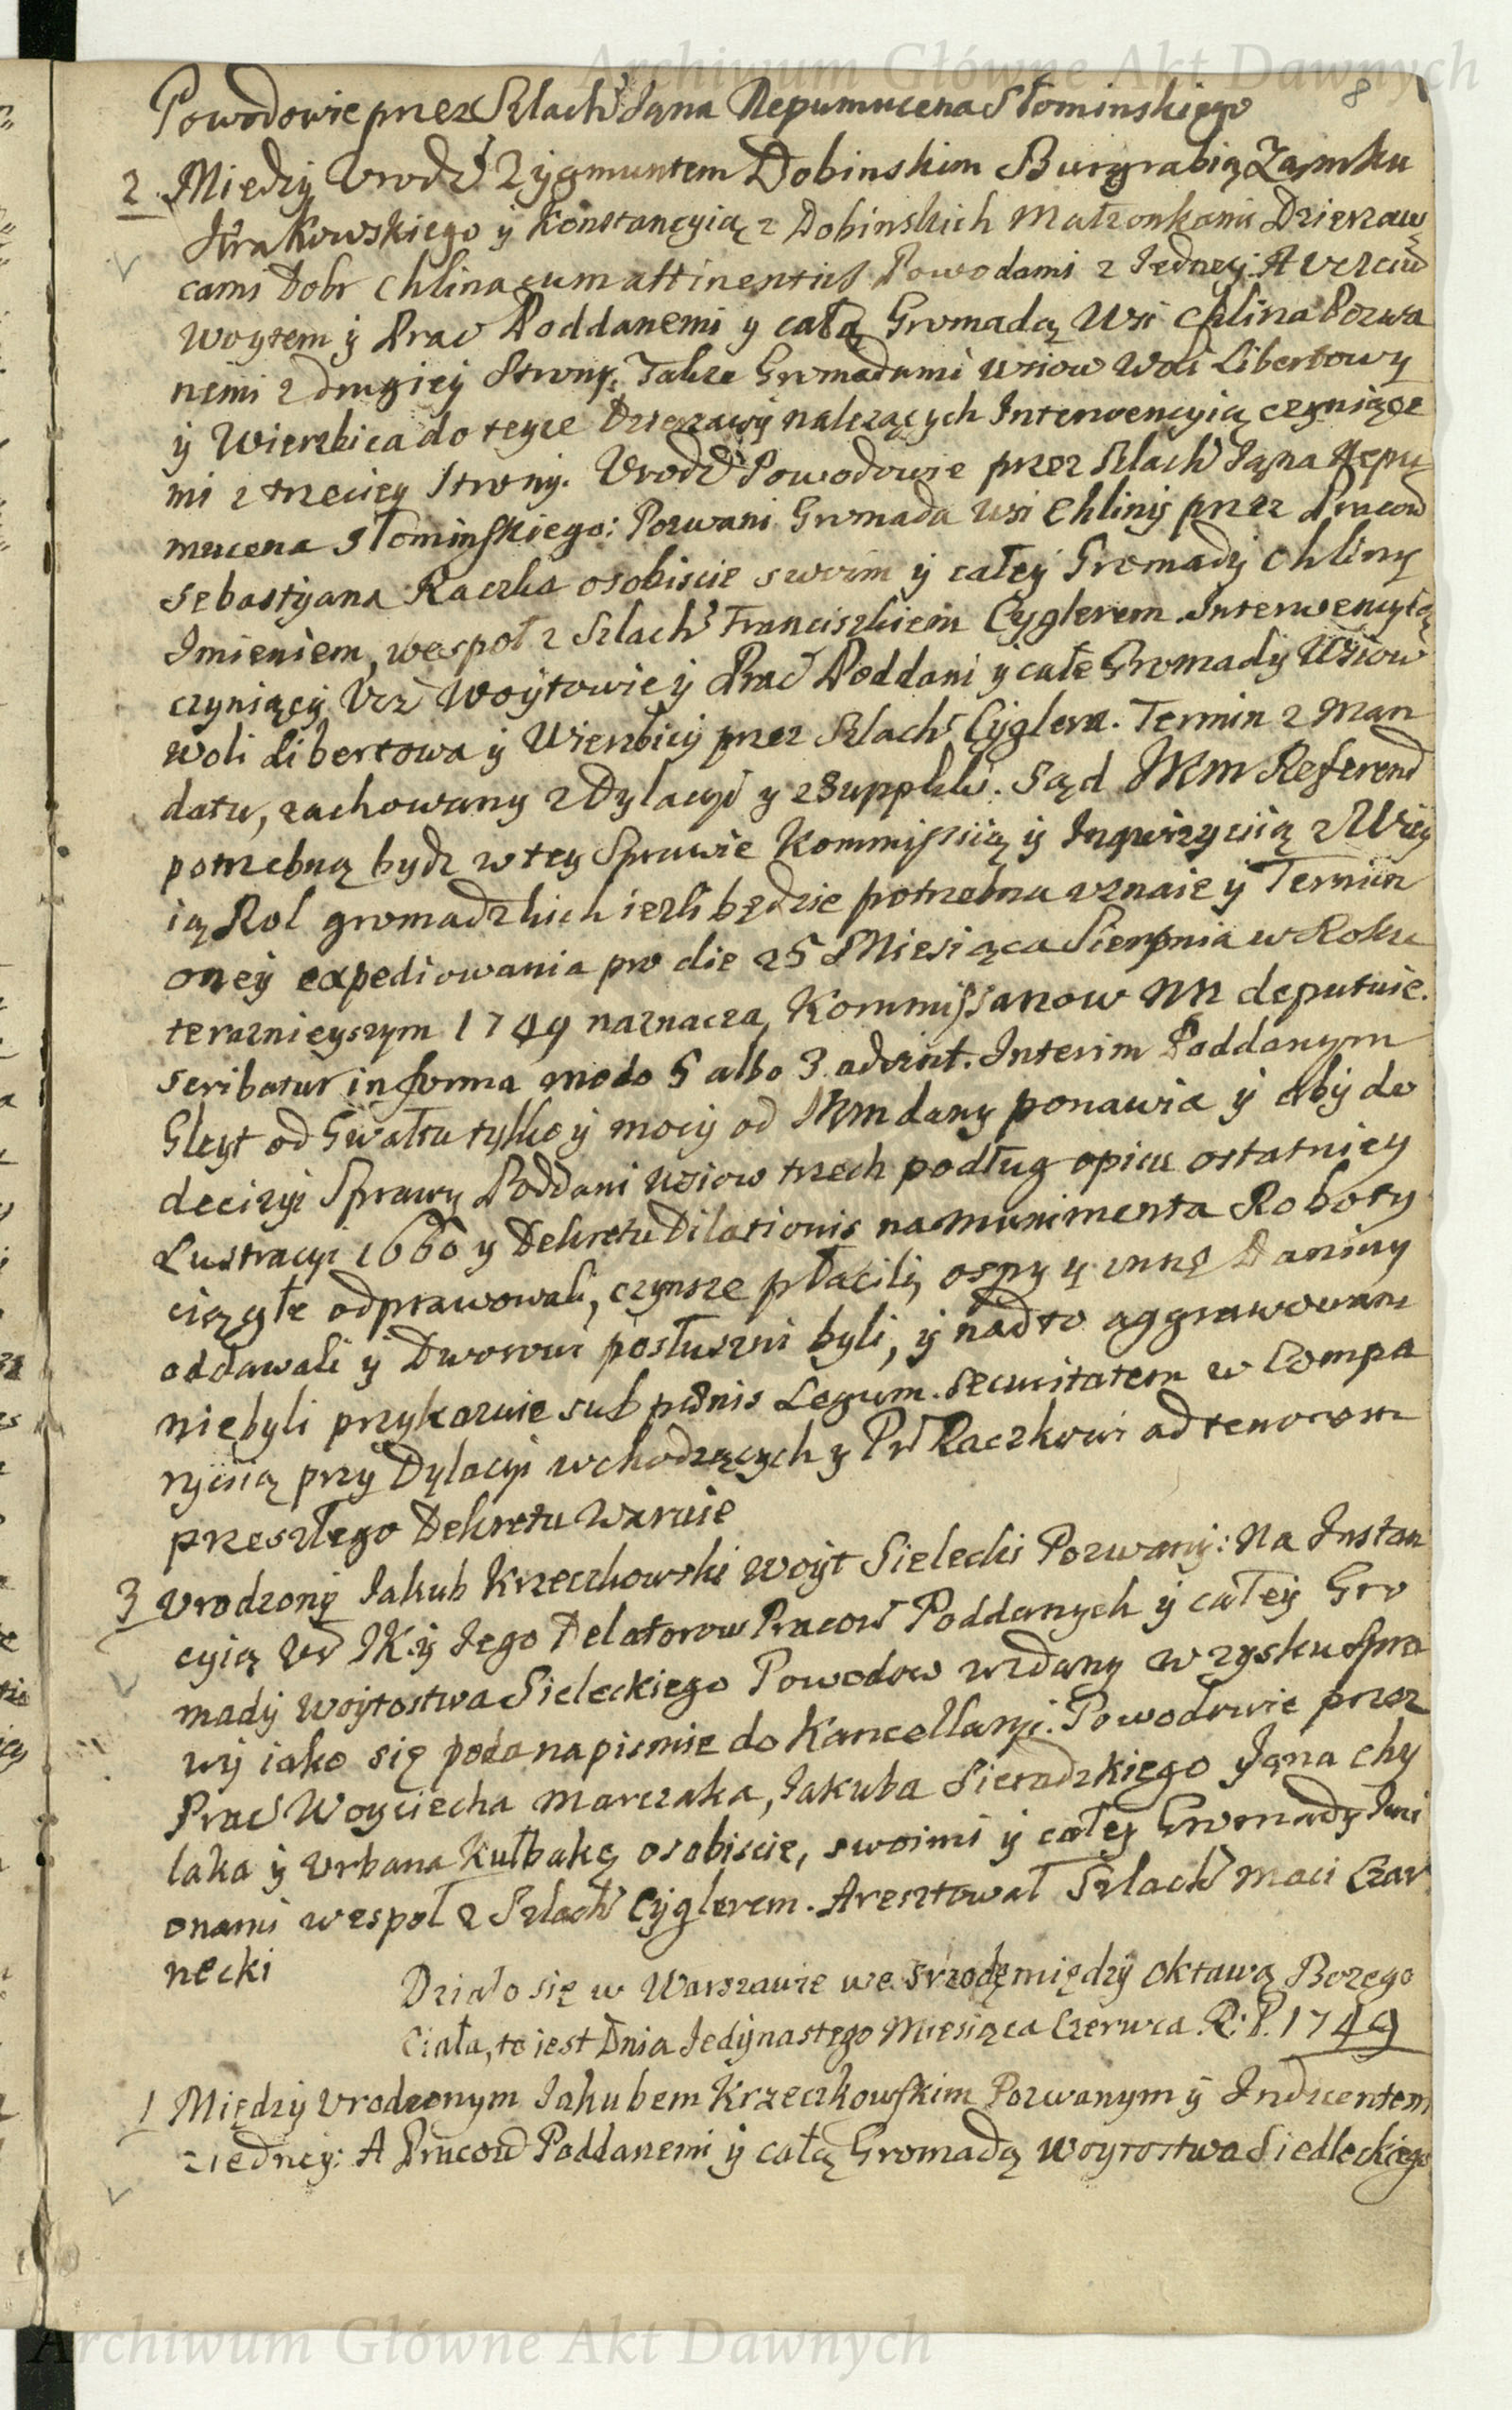 Archiwum Główne Akt Dawnych
8
Powodowie przez Szlach Jana Nepumucena Słominskiego
2 Między Urodz Zygmuntem Dobinskim Burgrabią Zamku
Krakowskiego y Konstancyią z Dobinskich Małzonkami Dzierzaw
cami Dobr Chlina cum attinentiis Powodami z Jedney: A Uczciw
Woytem y Prac Poddanemi y całą Gromadą Wsi Chlina Pozwa
nemi z drugiey Strony. Takze Gromadami Wsiow Woli Libertowy
y Wierzbica do teyze Dzierzawy nalezących Interwencyią czyniące
mi z trzeciey Strony. Urodz Powodowie przez Szlach Jana Nepu
mucena Słominskiego: Pozwani Gromada Wsi Chliny przez Pracow
Sebastyana Raczka osobiscie swoim y całey Gromady Chliny
Imieniem, wespoł z Szlach Franciszkiem Cyglerem. Interwencyią
czyniący Ucz Woytowie y Prac Poddani y całe Gromady Wsiow
Woli Libertowa y Wierzbicy przez Szlach Cyglera. Termin z Man
datu, zachowany z Dylacyi y z Supplik. Sąd JKM Referend
potrzebną bydz w tey Sprawie Kommissią y Inqwizycią z Wizy
ią Rol gromadzkich iezli będzie potrzebna uznaie y Termin
oney expediowania pro die 25 Miesiąca Sierpnia w Roku
teraznieyszym 1749 naznacza, Kommissarzow NN deputuie.
Scribatur in forma modo 5 albo 3 adsint. Interim Poddanym
Gleyt od Gwałtu tylko y mocy od JKM dany ponawia y aby do
decizyi Sprawy Poddani Wsiow trzech podług opisu ostatniey
Lustracyi 1660 y Dekretu Dilationis na munimenta Roboty
ciągłe odprawowali, czynsze płacili, ospy y inne Daniny
oddawali y Dworowi posłuszni byli, y nadto aggrawowani
niebyli przykazuie sub pœnis Legum. Securitatem w Compa
rycią przy Dylacyi wchodzących y Pr Raczkowi ad tenorem
przeszłego Dekretu Waruie
3 Urodzony Jakub Krzeczkowski Woyt Sielecki Pozwany: Na Instan
cyią Ur JK. y Jego Delatorow Pracow Poddanych y całey Gro
mady Woytostwa Sieleckiego Powodow wzdany w zysku Spra
wy iako się poda na pismie do Kancellaryi. Powodowie przez
Prac Woyciecha Marczaka, Jakuba Sieradzkiego Jana Chy
laka y Urbana Kułbakę osobiscie, swoimi y całey Gromady Imi
onami wespoł z Szlach Cyglerem. Aresztował Szlach Maci Czar
necki
Działo się w Warszawie we Srzodę między Oktawą Bozego
Ciała, to iest Dnia Jedynastego Miesiąca Czerwca. R: P. 1749
1 Między Urodzonym Jakubem Krzeczkowskim Pozwanym y Inducentem
z iedney: A Pracow Poddanemi y całą Gromadą Woytostwa Siedleckiego
Archiwum Główne Akt Dawnych